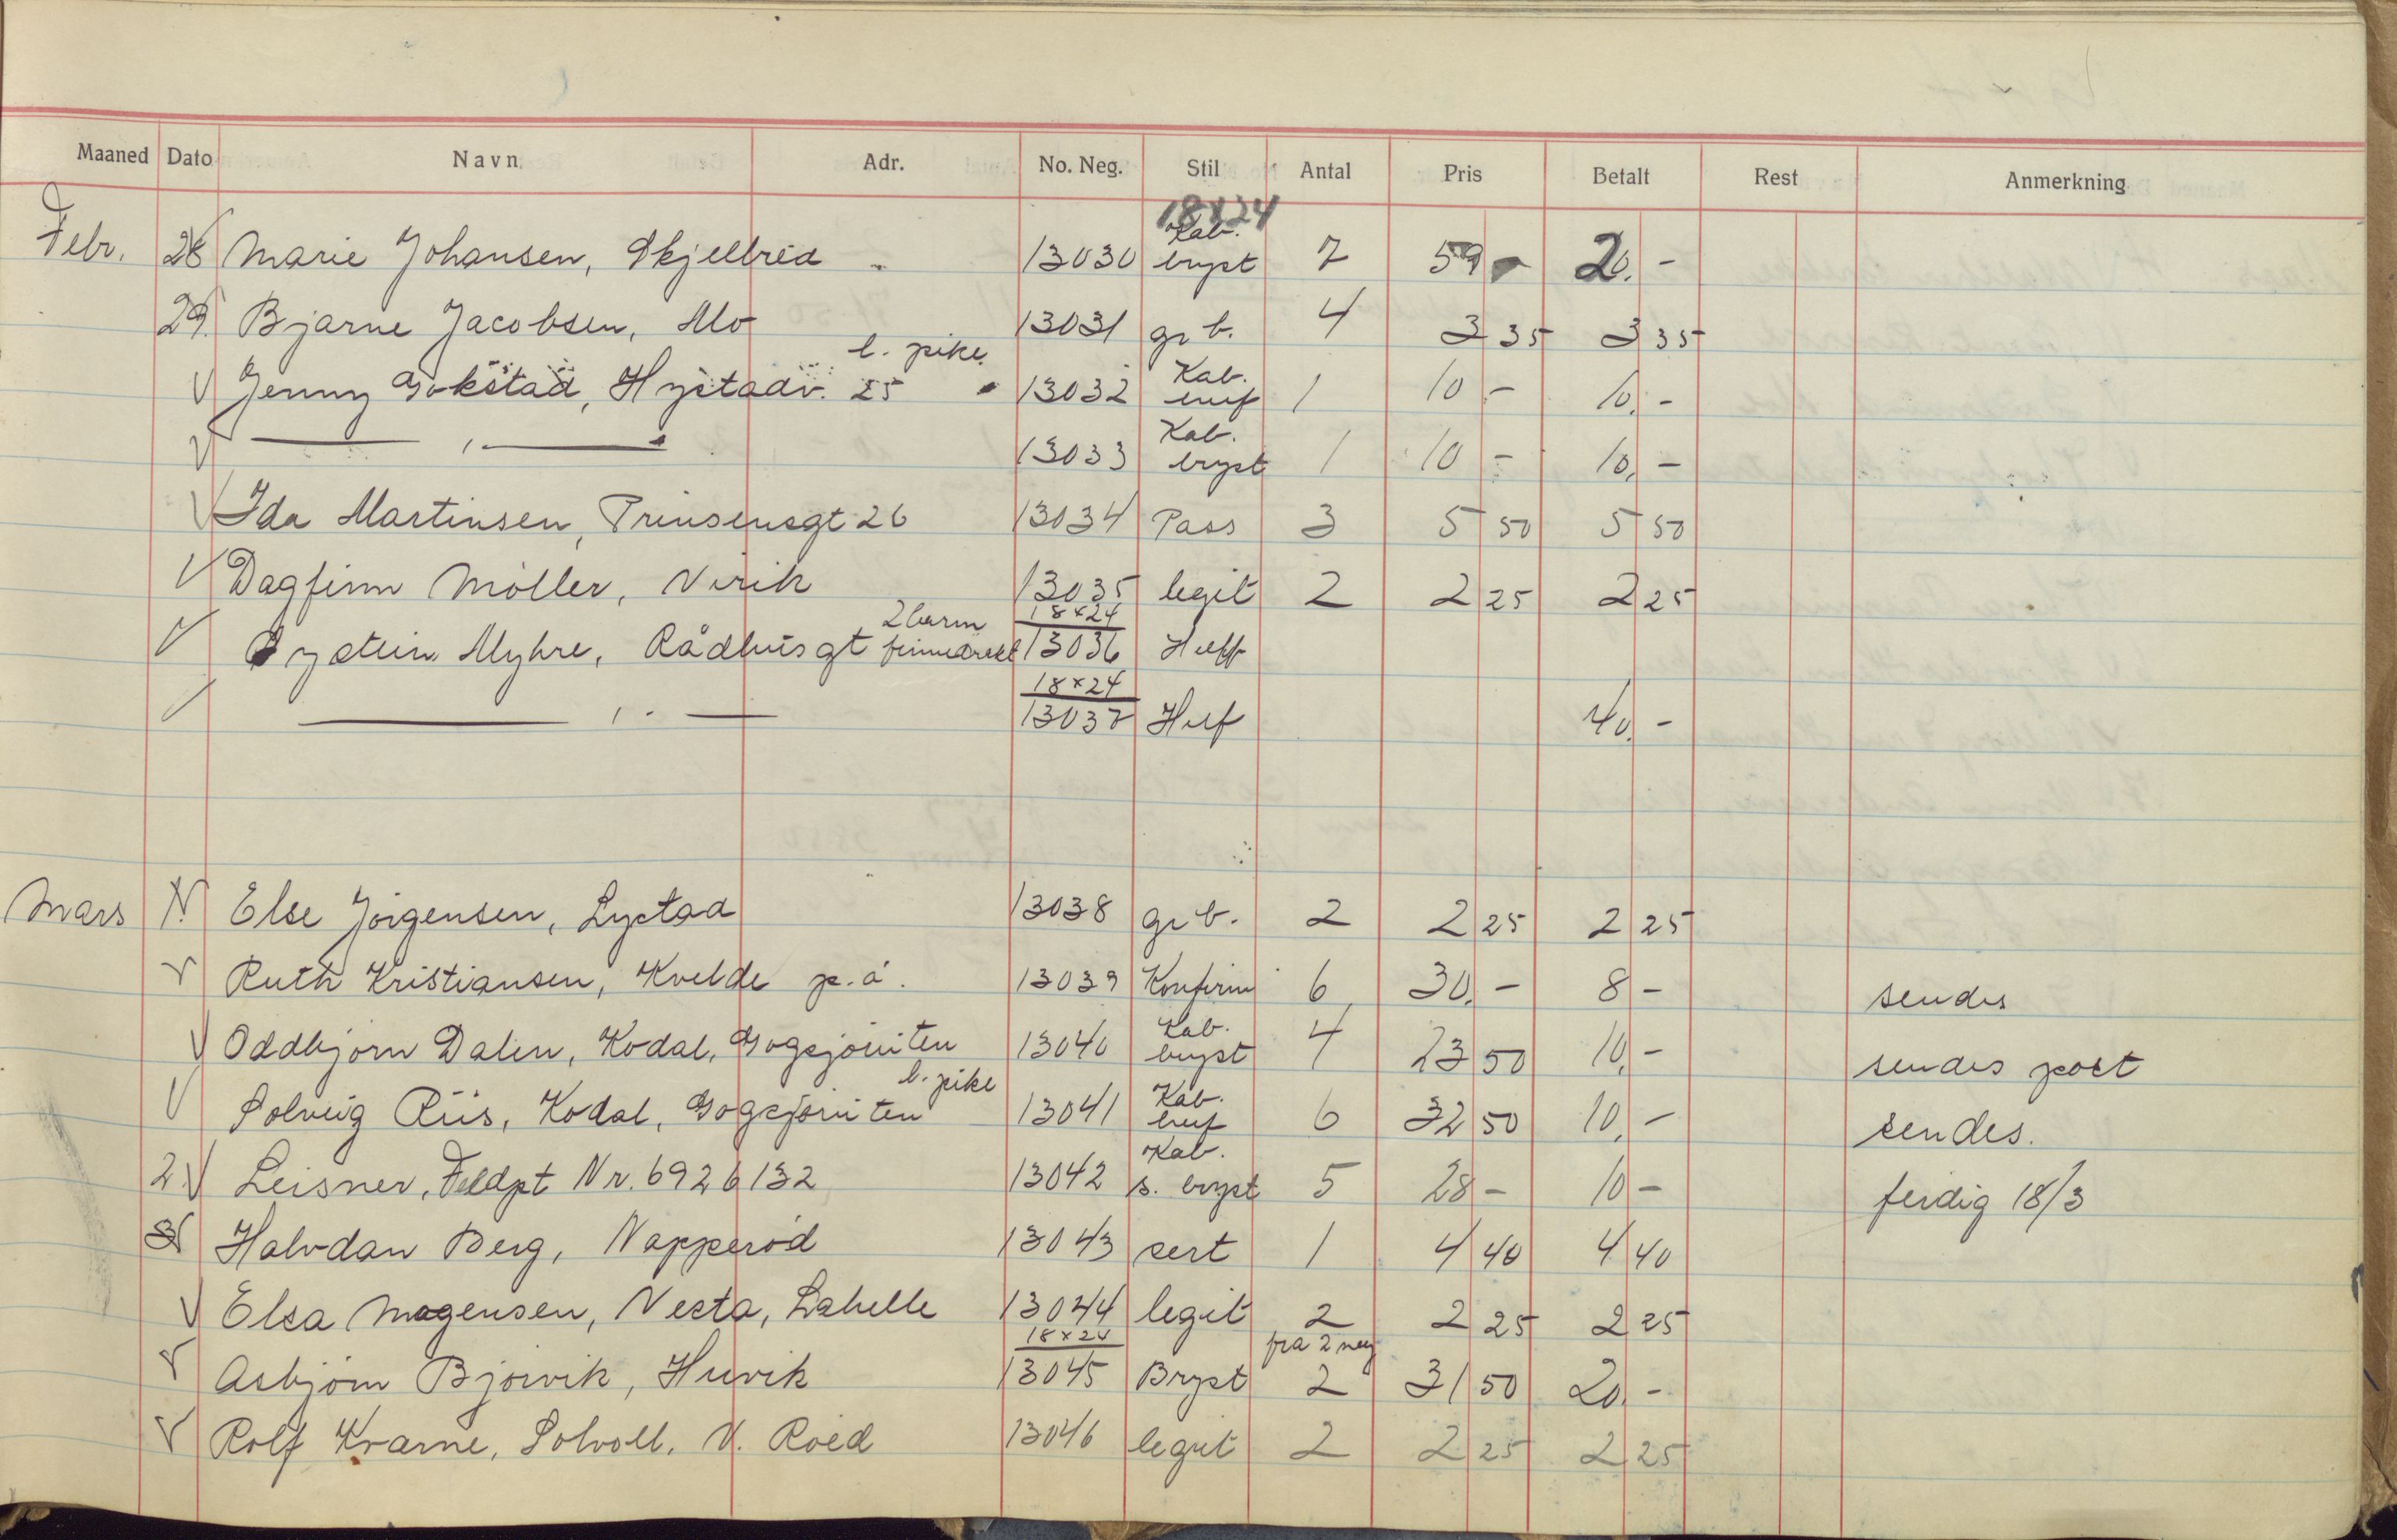 Maaned Dato Navn Adr. No. Neg. Stil Antal Pris Betalt Rest Anmerkning
18x24
Kab.
Febr. 28 Marie Johansen, Skjellvid 13030 bryst 7 59 20. -
29. Bjarne Jacobsen, Mo 13031 gr b. 4 3 35 3 35
l. pike Kab.
V Jenny Gokstad, Hystadv. 25 13032 huf 1 10 - 10. -
Kab.
V — " — 13033 bryst 1 10 - 10. -
V Ida Martinsen, Prinsensgt 26 13034 Pass 3 5 50 5 50
V Dagfinn Möller, Virik 13035 legit 2 2 25 2 25
2 barn 18x24
V Øystein Myhre, Rådhusgt 13036 Huff
18x24
V — " — 13037 Huf 40. -
Mars 1. V Else Jörgensen, Lystad 13038 gr b. 2 2 25 2 25
V Ruth Kristiansen, Kvelde p.å. 13039 Konfirm 6 30. - 8 - sendes
Kab.
V Oddbjørn Dalen, Kodal, Gogsjöruten 13040 bryst 4 23 50 10. - sendes post
l. pike Kab.
V Solveig Riis, Kodal, Gogsjöruten 13041 huf 6 32 50 10. - sendes.
Kab.
2. V Leisner, Feldpt Nr. 6926132 13042 s. bryst 5 28 - 10 - ferdig 18/3
3 V Halvdan Berg, Napperöd 13043 sert 1 4 40 4 40
V Elsa Mogensen, Nesta, Lahelle 13044 legit 2 2 25 2 25
18x24 fra 2 neg
V Asbjörn Bjørvik, Huvik 13045 Bryst 2 31 50 20. -
V Rolf Kvarne, Solvoll, V. Röed 13046 legit 2 2 25 2 25